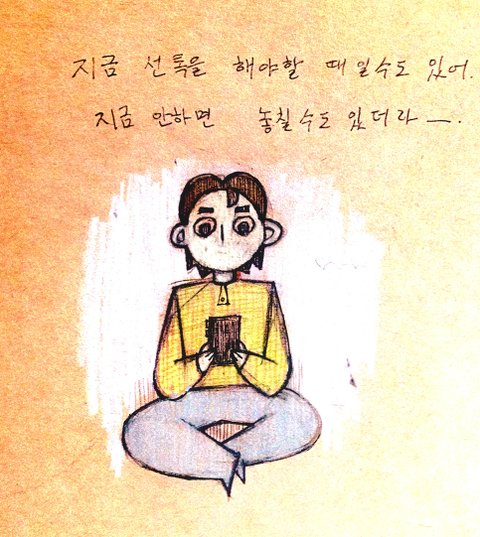 지금 선톡을 해야할 때 일수도 있어.
지금 안하면 놓칠수도 있더라 —.